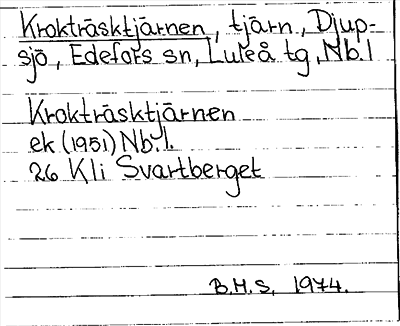 Krokträsktjärnen, tjärn., Djup-
sjö, Edefors sn, Luleå tg, Nb. l
Krokträsktjärnen
ek (1951) Nb. l.
26 Kli Svartberget
B.H.S, 1974.